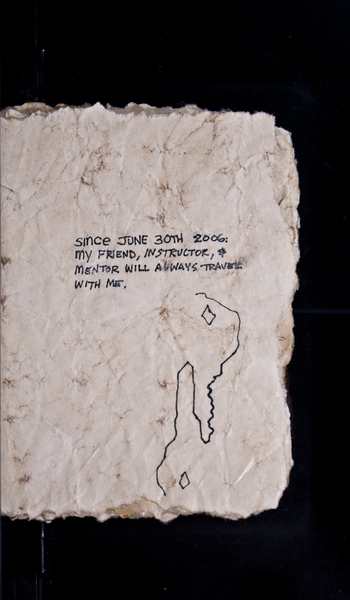 since JUNE 30TH 2006:
MY FRIEND, INSTRUCTOR, &
MENTOR WILL ALWAYS TRAVEL
WITH ME.